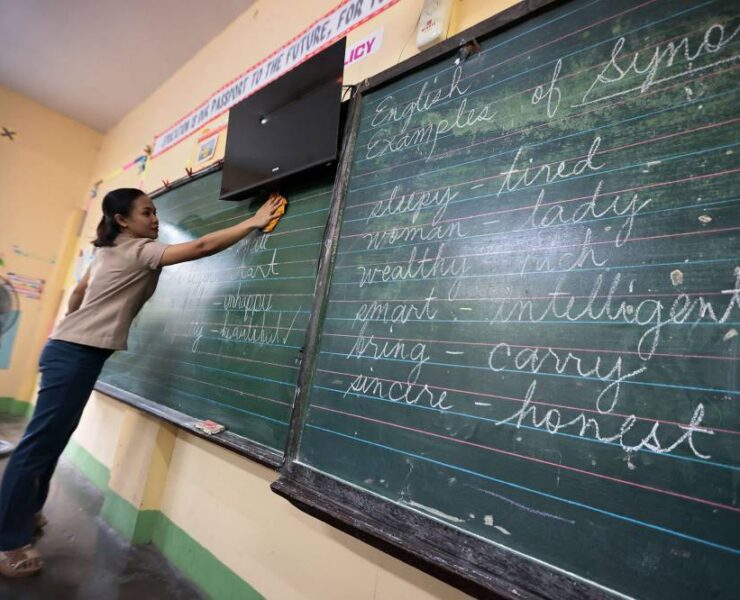 EDUCATION IS OUR PASSPORT TO THE FUTURE, FOR
LICY
English
Examples of Syno
sleepy - tired
woman - lady
wealthy rich
smart - intelligent
bring - carry
sincere - honest
- unhappy
- beautiful